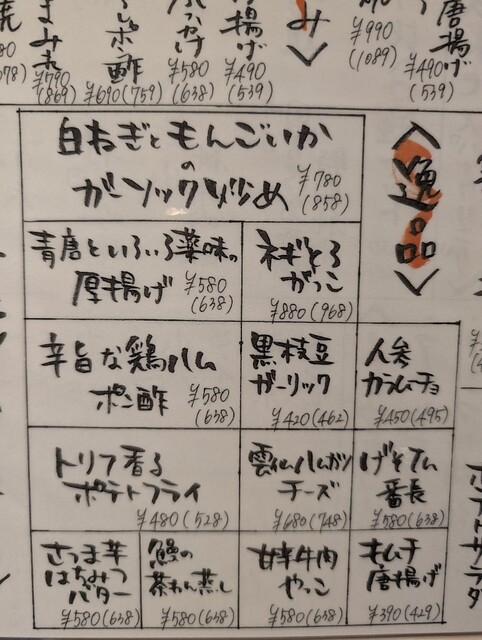 ¥790
(869)
ポン酢
¥690(759)
¥580
(638)
揚げ
¥490
(539)
み
¥990
(1089)
唐揚げ
¥490
(539)
〈逸品〉
白ねぎともんごいか
の
ガーリック炒め
¥780
(858)
青唐といろいろ薬味の
厚揚げ ¥580
(638)
ネギとろ
がっこ
¥880(968)
辛旨な鶏ハム
ポン酢 ¥580
(638)
黒枝豆
ガーリック
¥420(462)
人参
カラムーチョ
¥450(495)
トリフ香る
ポテトフライ
¥480(528)
雲仙ハムカツ
チーズ
¥680(748)
げそ天
番長
¥580(638)
さつま芋
はちみつ
バター
¥580(638)
鰻の
茶わん蒸し
¥580(638)
甘辛牛肉
やっこ
¥580(638)
キムチ
唐揚げ
¥390(429)
ポテトサラダ